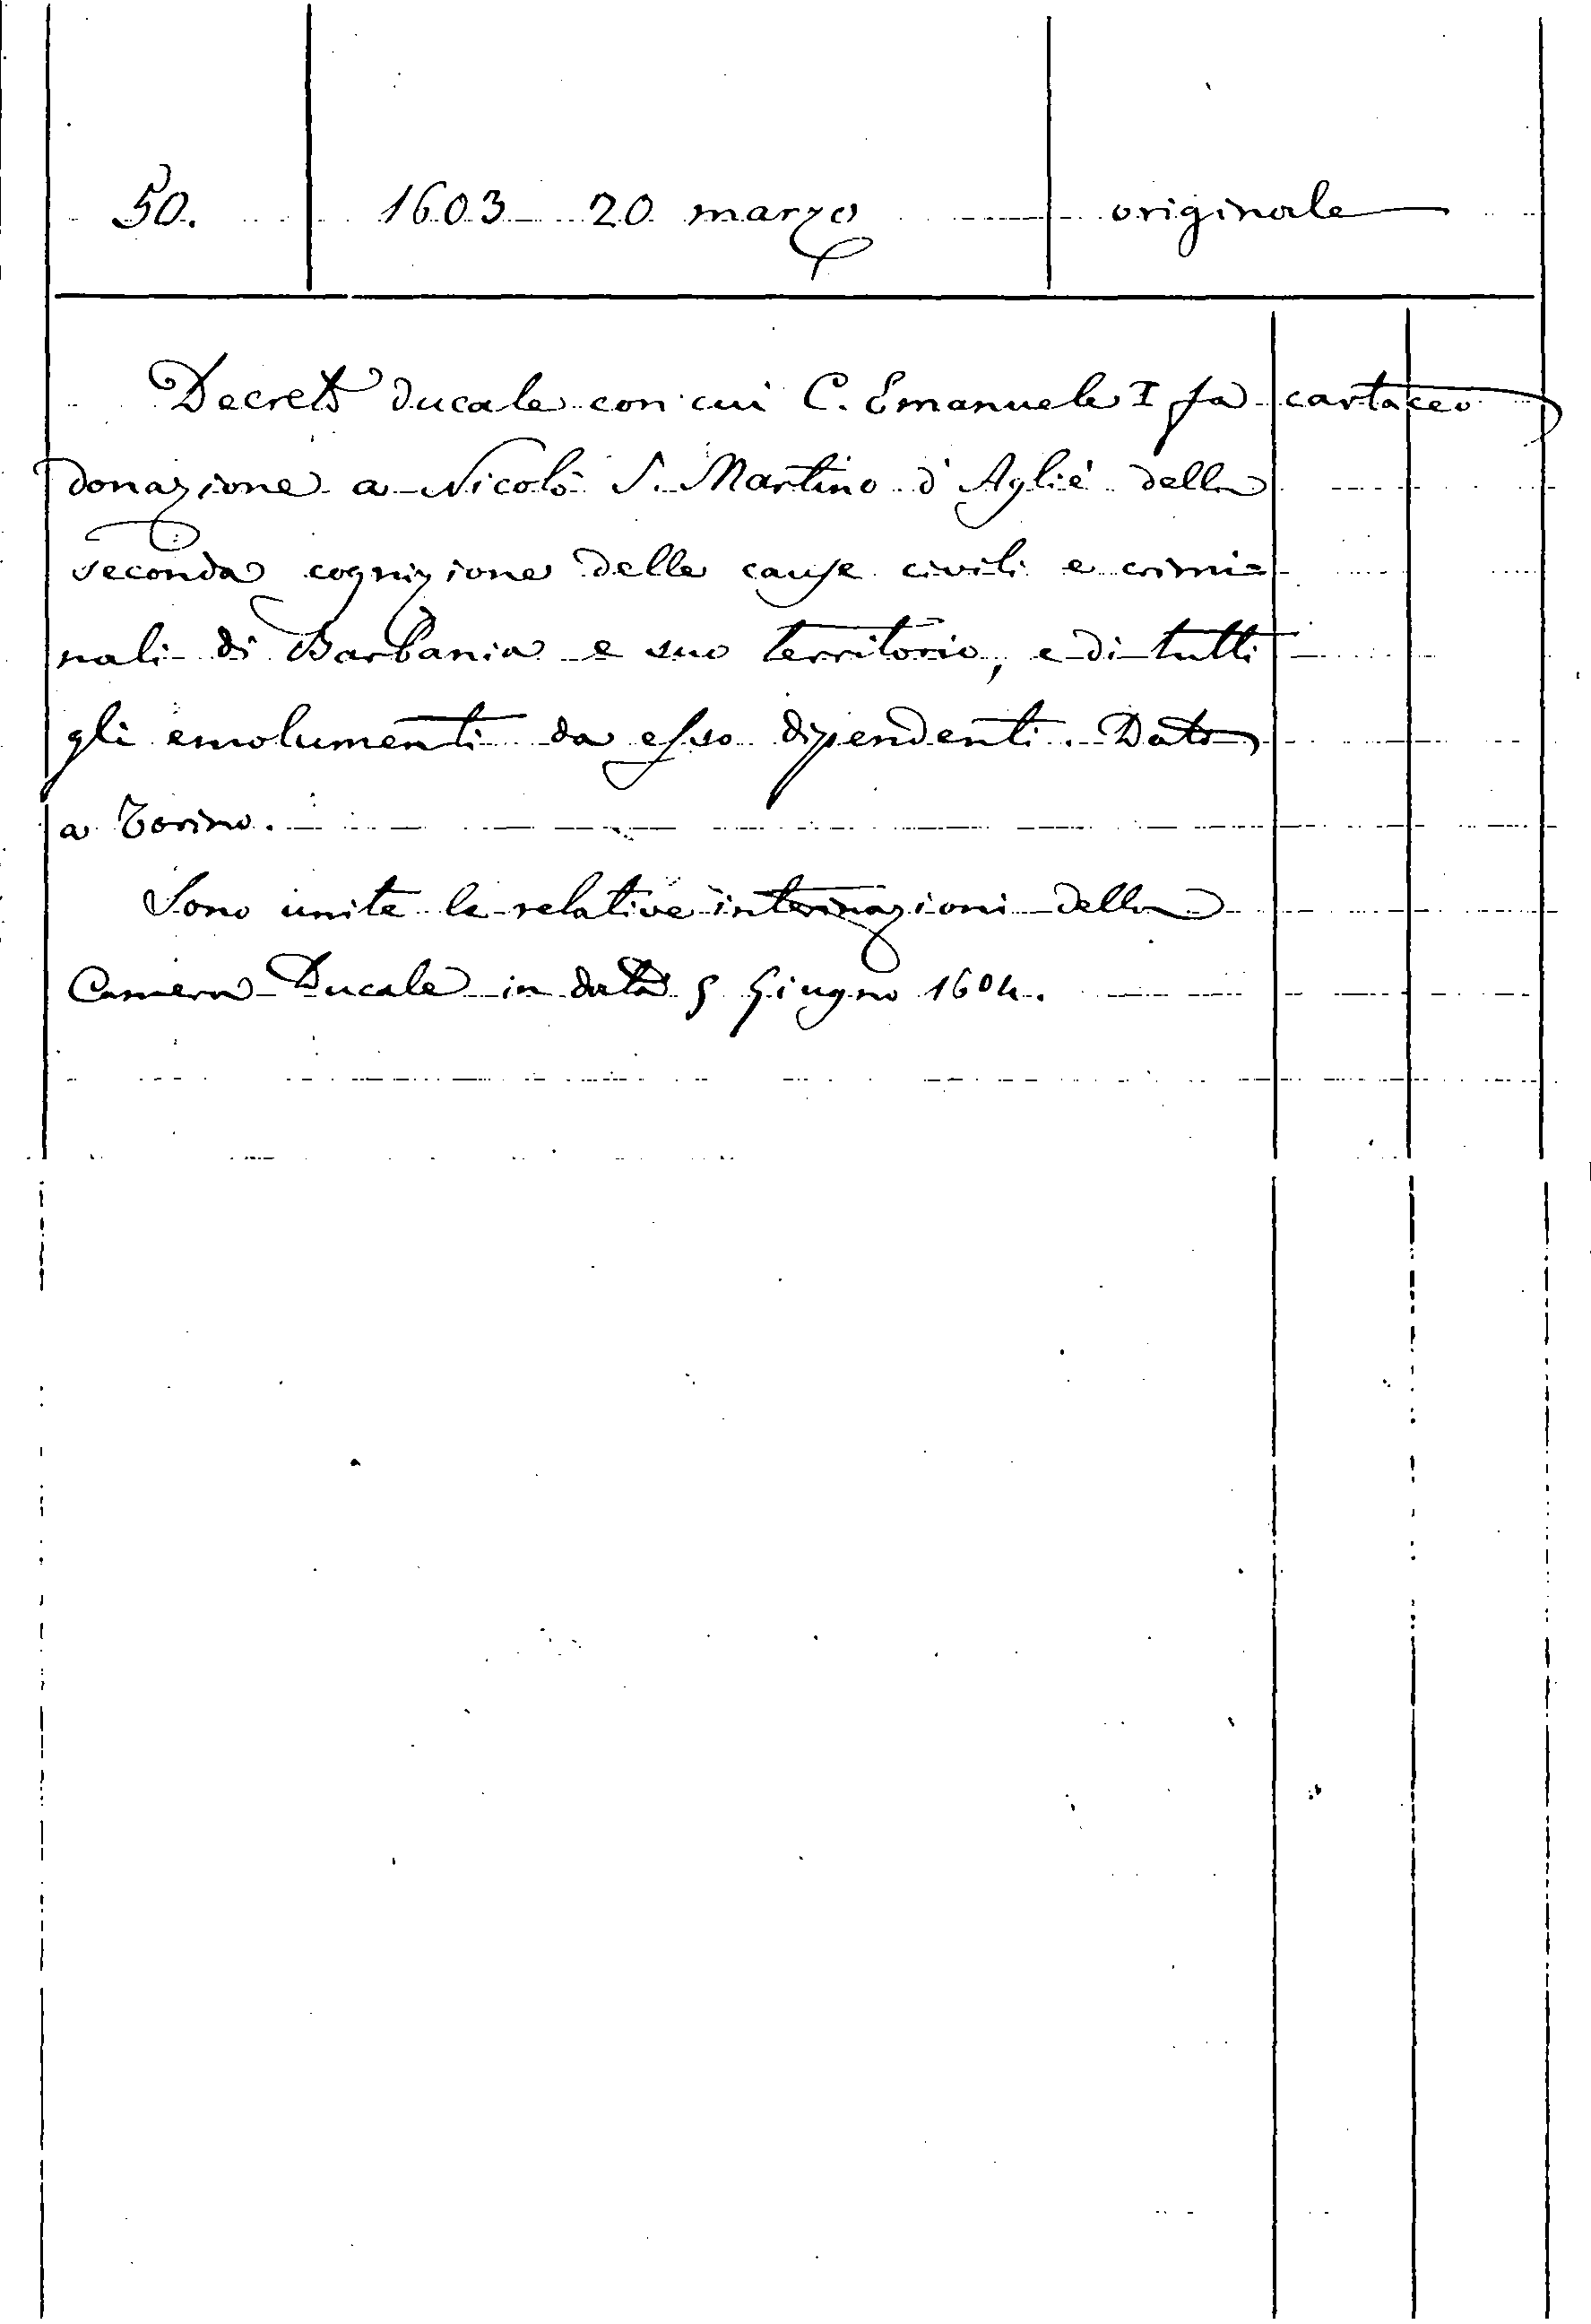 50. 1603 20 marzo originale
Decreto ducale con cui C. Emanuele I fa cartaceo
donazione a Nicolò S. Martino d'Agliè della
seconda cognizione delle cause civili e crimi=
nali di Barbania e suo territorio, e di tutti
gli emolumenti da esso dipendenti. Dato
a Torino.
Sono unite le relative interinazioni della
Camera Ducale in data 5 Giugno 1604.